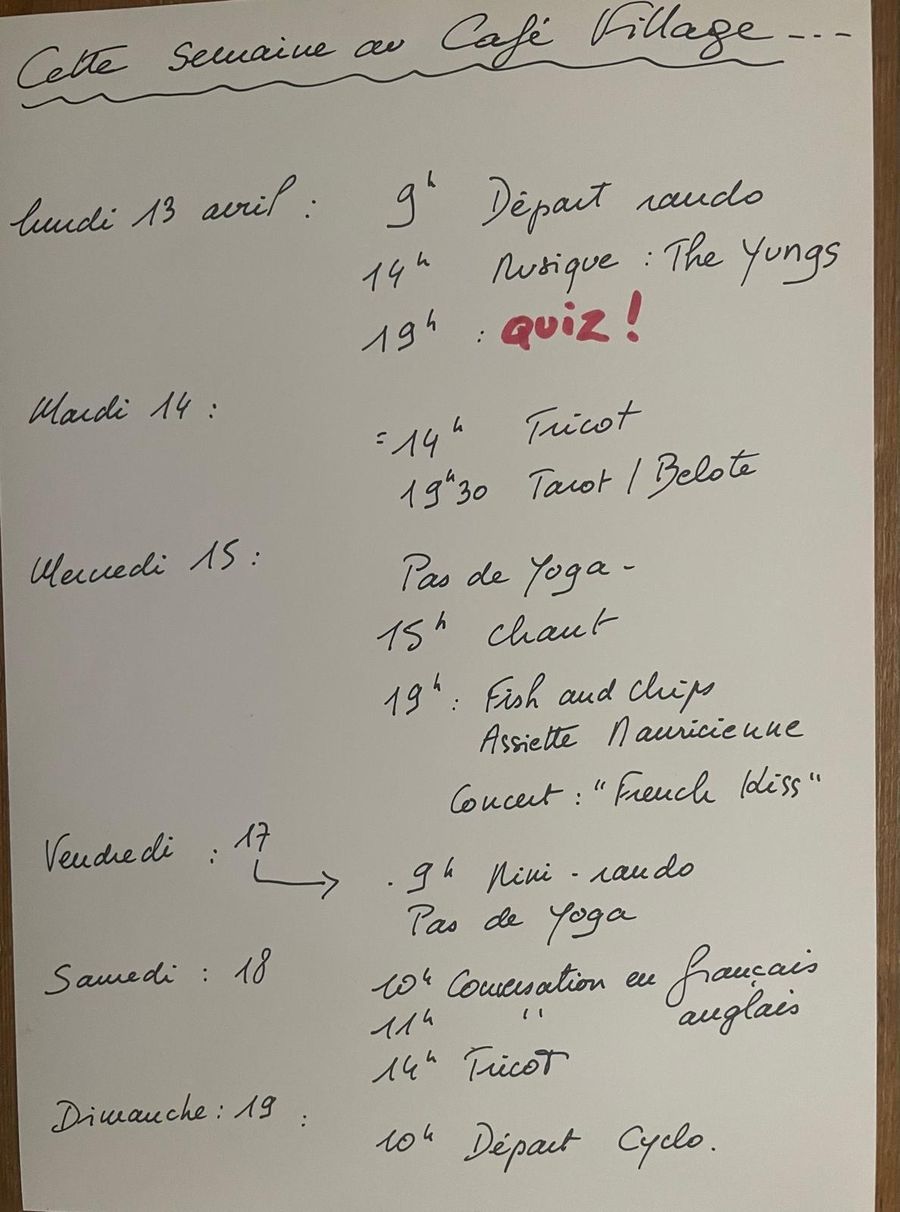 Cette semaine au Café Village ---
lundi 13 avril : 9h Départ rando
14h Musique : The Yungs
19h : QUIZ !
Mardi 14 :
= 14h Tricot
19h30 Tarot / Belote
Mercredi 15 : Pas de Yoga -
15h chant
19h : Fish and chips
Assiette Mauricienne
Concert : "French Kiss"
Vendredi : 17
→ . 9h Mini - rando
Pas de Yoga
Samedi : 18 10h Conversation en français
11h " anglais
14h Tricot
Dimanche : 19 :
10h Départ Cyclo.